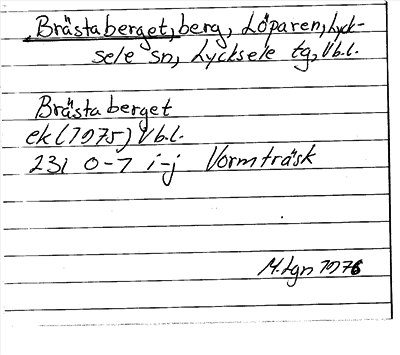 Brästaberget, berg, Löparen, Lyck-
sele sn, Lycksele tg, Vb.l.
Brästaberget
ek (1975) Vb.l.
23I 0-7 i-j Vormträsk
M.Lgn 1976